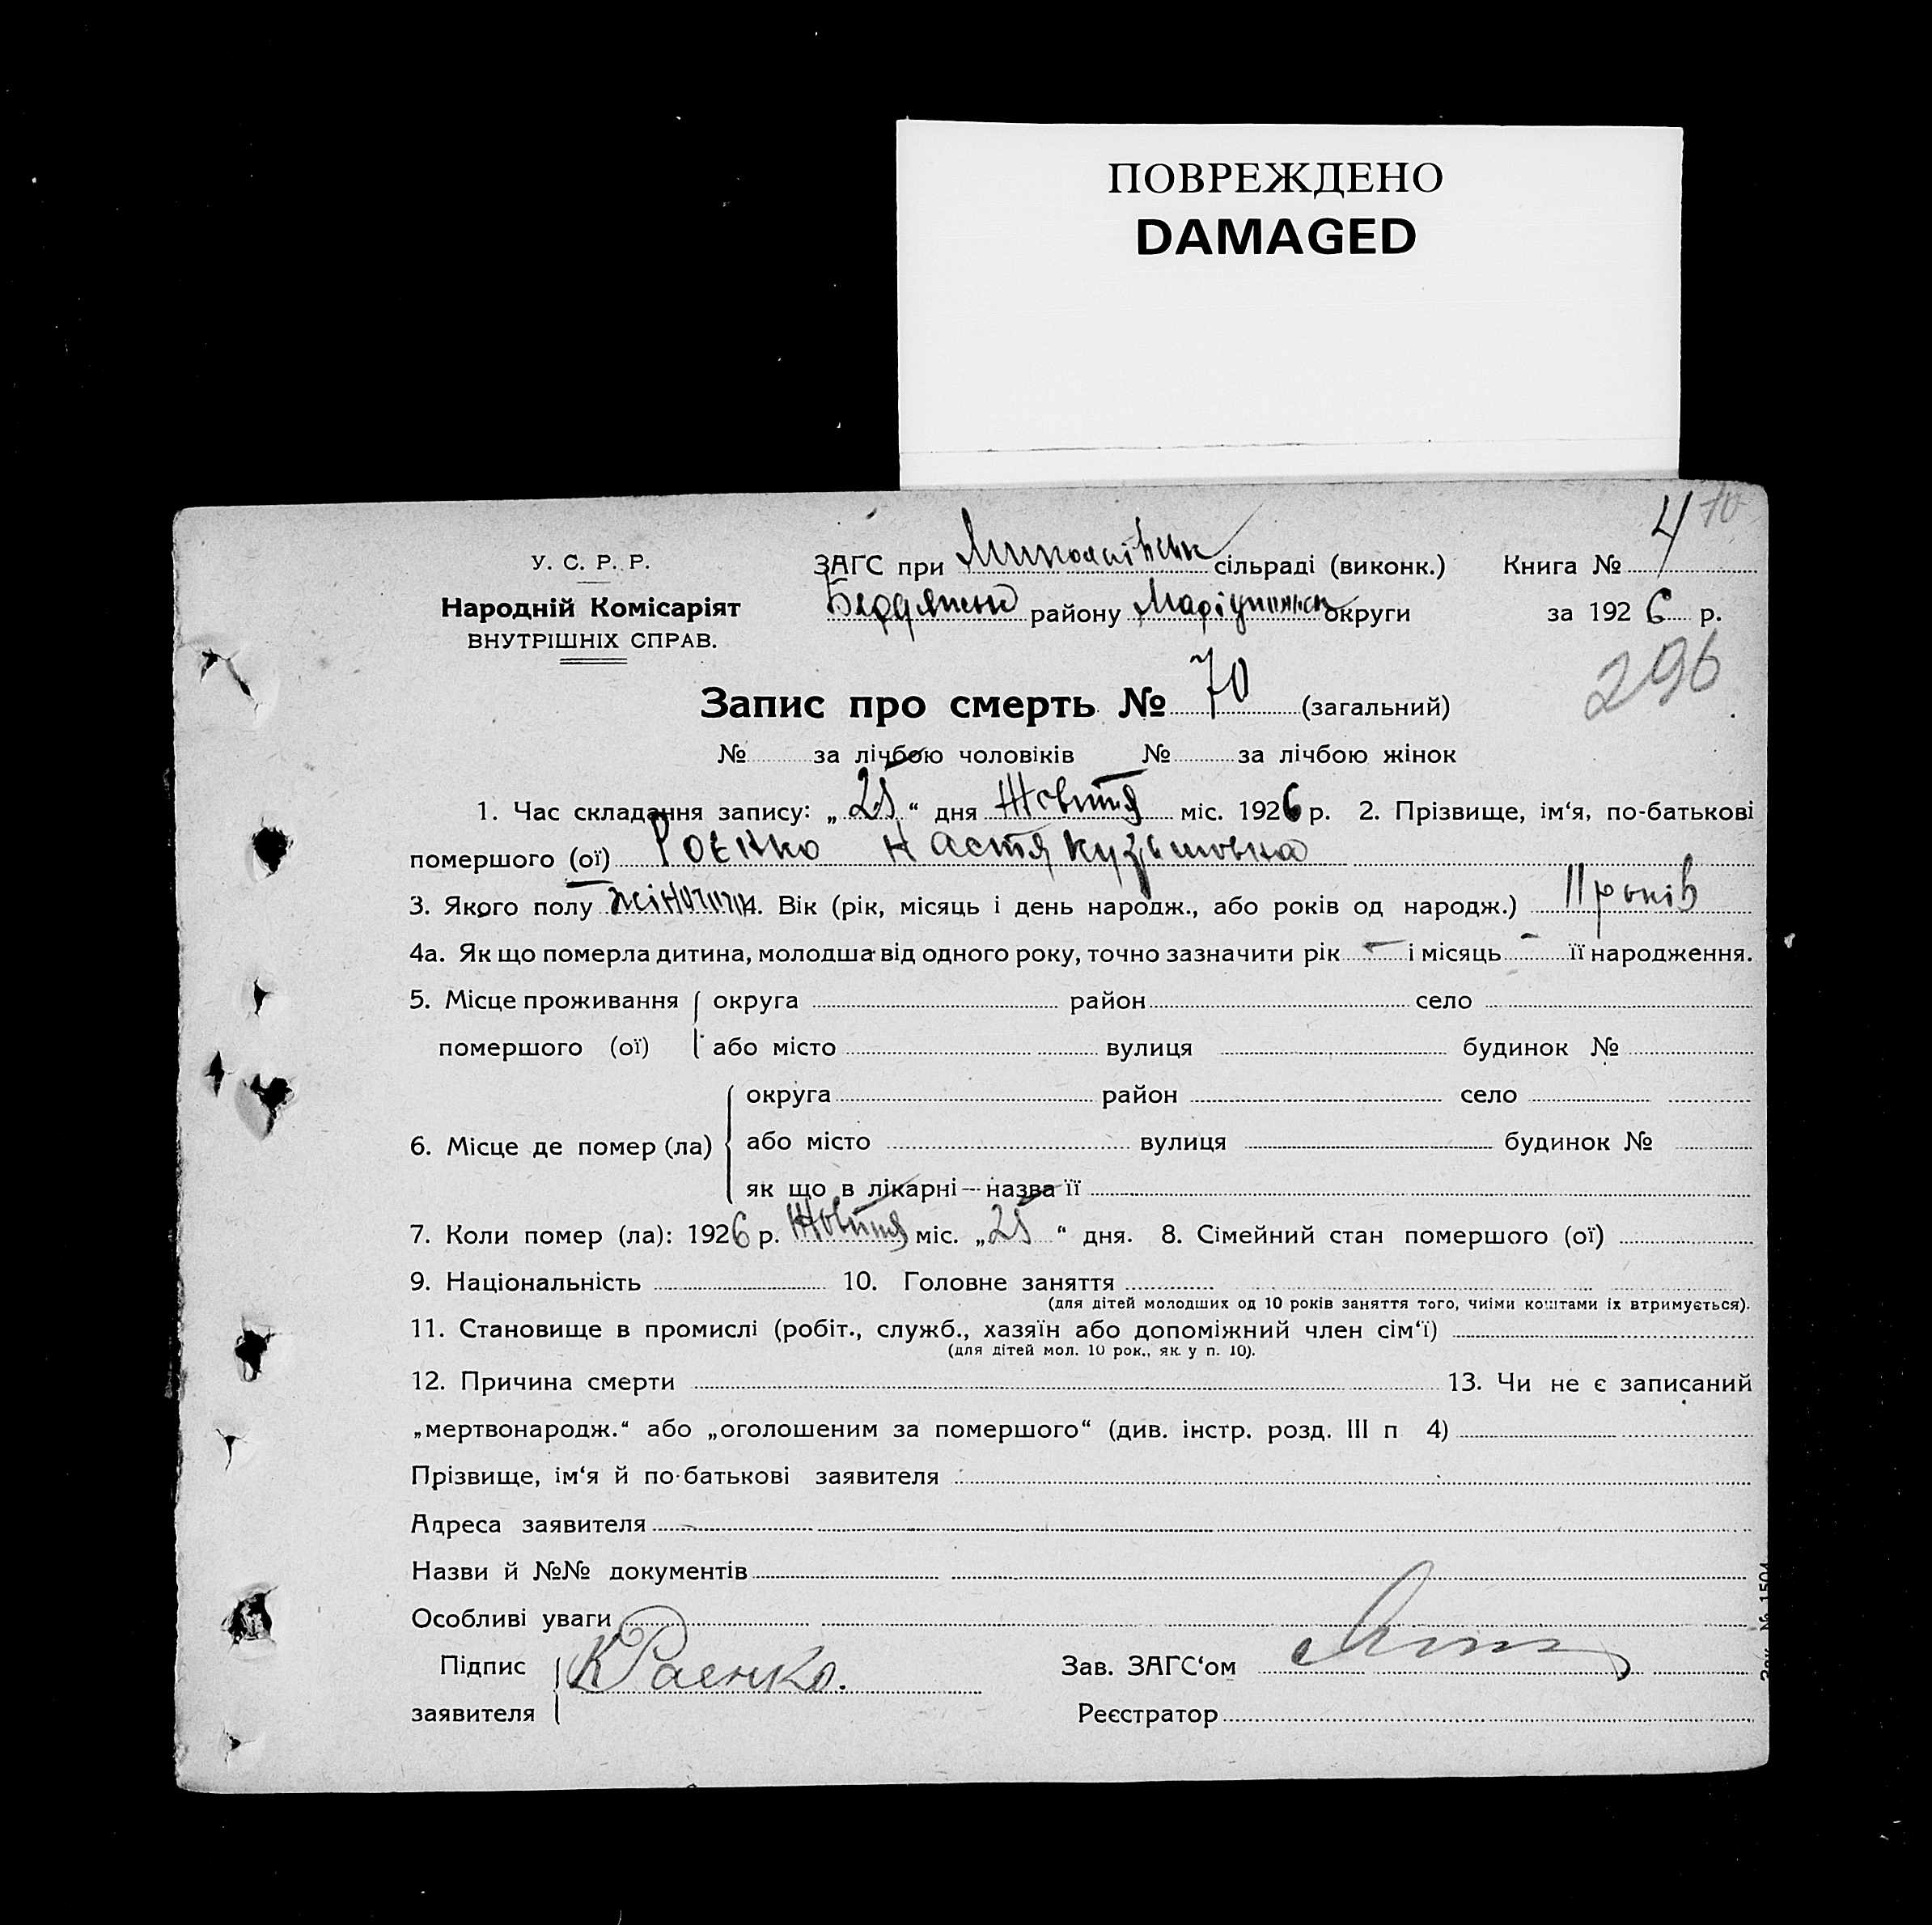 ПОВРЕЖДЕНО
DAMAGED
4 70
У. С. Р. Р. ЗАГС при Миколаївськ сільраді (виконк.) Книга №
Народній Комісаріят Бердянськ району Маріупільск округи за 1926 р.
ВНУТРІШНІХ СПРАВ.
296
Запис про смерть № 70 (загальний)
№ за лічбою чоловіків № за лічбою жінок
1. Час складання запису: „25“ дня Жовтня міс. 1926 р. 2. Прізвище, ім‘я, по-батькові
помершого (ої) Роєнко Настя Кузьмовна
3. Якого полу жіночого 4. Вік (рік, місяць і день народж., або років од народж.) 11 років
4а. Як що померла дитина, молодша від одного року, точно зазначити рік — і місяць — її народження.
5. Місце проживання округа район село
помершого (ої) або місто вулиця будинок №
округа район село
6. Місце де помер (ла) або місто вулиця будинок №
як що в лікарні — назва її
7. Коли помер (ла): 1926 р. Жовтня міс. „25“ дня. 8. Сімейний стан помершого (ої)
9. Національність 10. Головне заняття
(для дітей молодших од 10 років заняття того, чиїми коштами їх втримується).
11. Становище в промислі (робіт., служб., хазяїн або допоміжний член сім‘ї)
(для дітей мол. 10 рок., як у п. 10).
12. Причина смерти 13. Чи не є записаний
„мертвонародж.“ або „оголошеним за помершого“ (див. інстр. розд. III п 4)
Прізвище, ім‘я й по-батькові заявителя
Адреса заявителя
Назви й №№ документів
Особливі уваги
Підпис К Раенко. Зав. ЗАГС‘ом
заявителя Реєстратор
Зак. № 1504